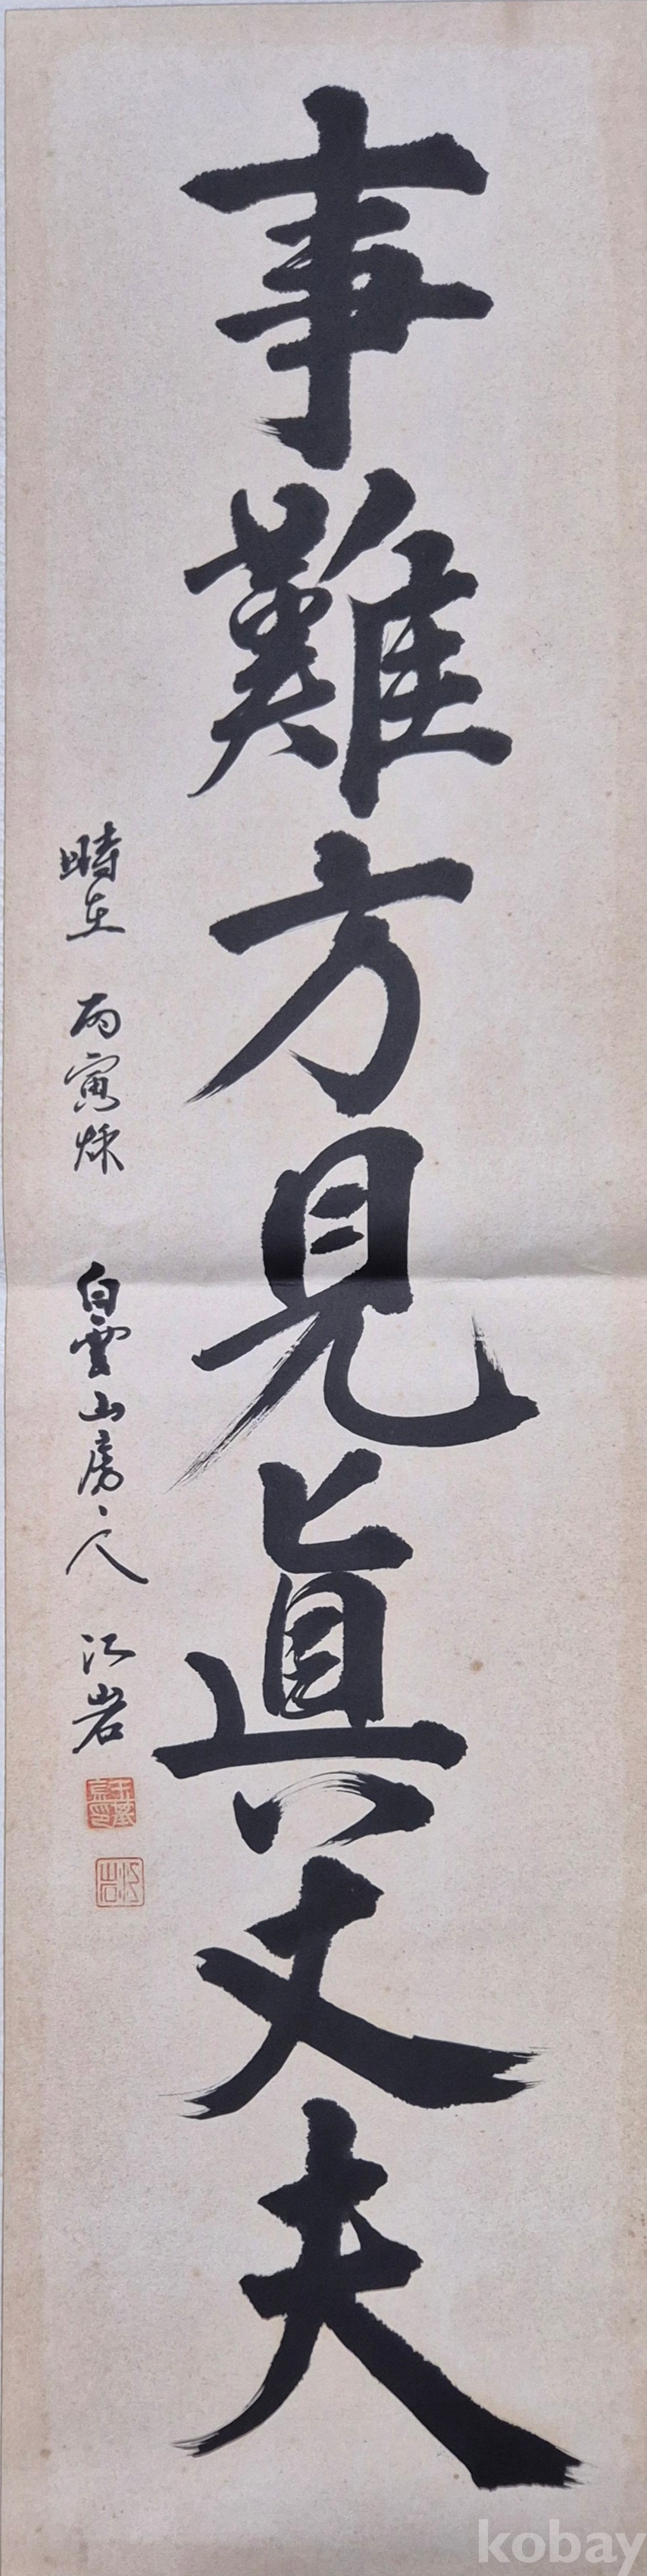 事難方見眞丈夫
時在 丙寅烁 白雲山房ヽ人 江岩
江岩
kobay